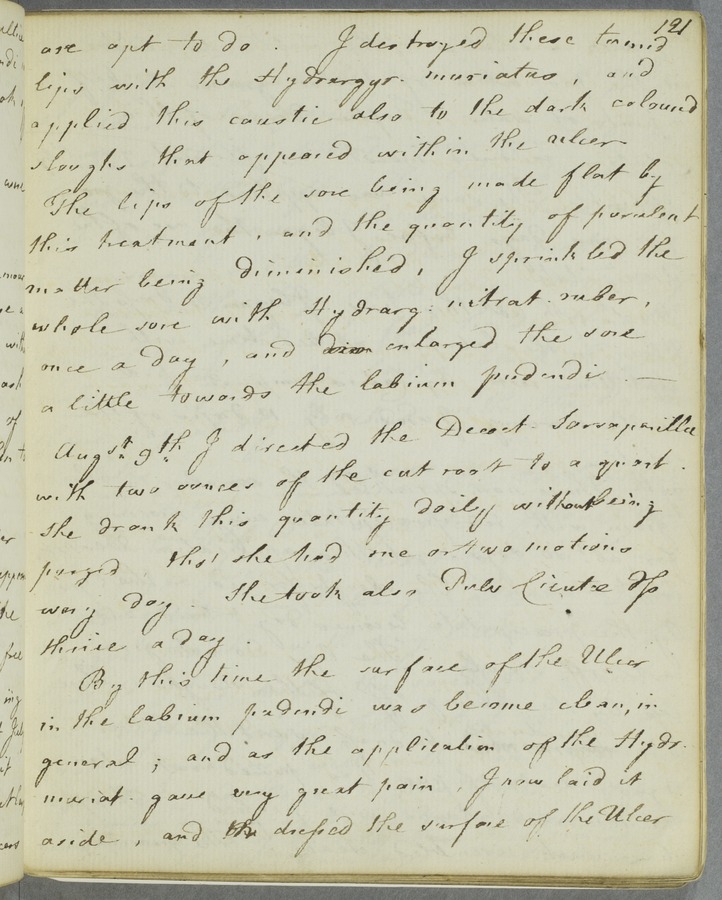 121
are apt to do . I destroyed these tumid
lips with the Hydrargyr. muriatus, and
applied this caustic also to the dark coloured
sloughs that appeared within the ulcer
The lips of the sore being made flat by
this treatment, and the quantity of purulent
matter being diminished, I sprinkled the
whole sore with Hydrarg: nitrat. ruber,
once a day, and enlarged the sore
a little towards the labium pudendi —
Augst 9th I directed the Decoct. Sarsaparillæ
with two ounces of the cut root to a quart.
She drank this quantity daily without being
purged tho' she had one or two motions
every day. She took also Pulv Cicutæ
thrice a day.
By this time the surface of the Ulcer
in the labium pudendi was become clean, in
general; and as the application of the Hydr.
muriat. gave very great pain, I now laid it
aside, and dressed the surface of the Ulcer